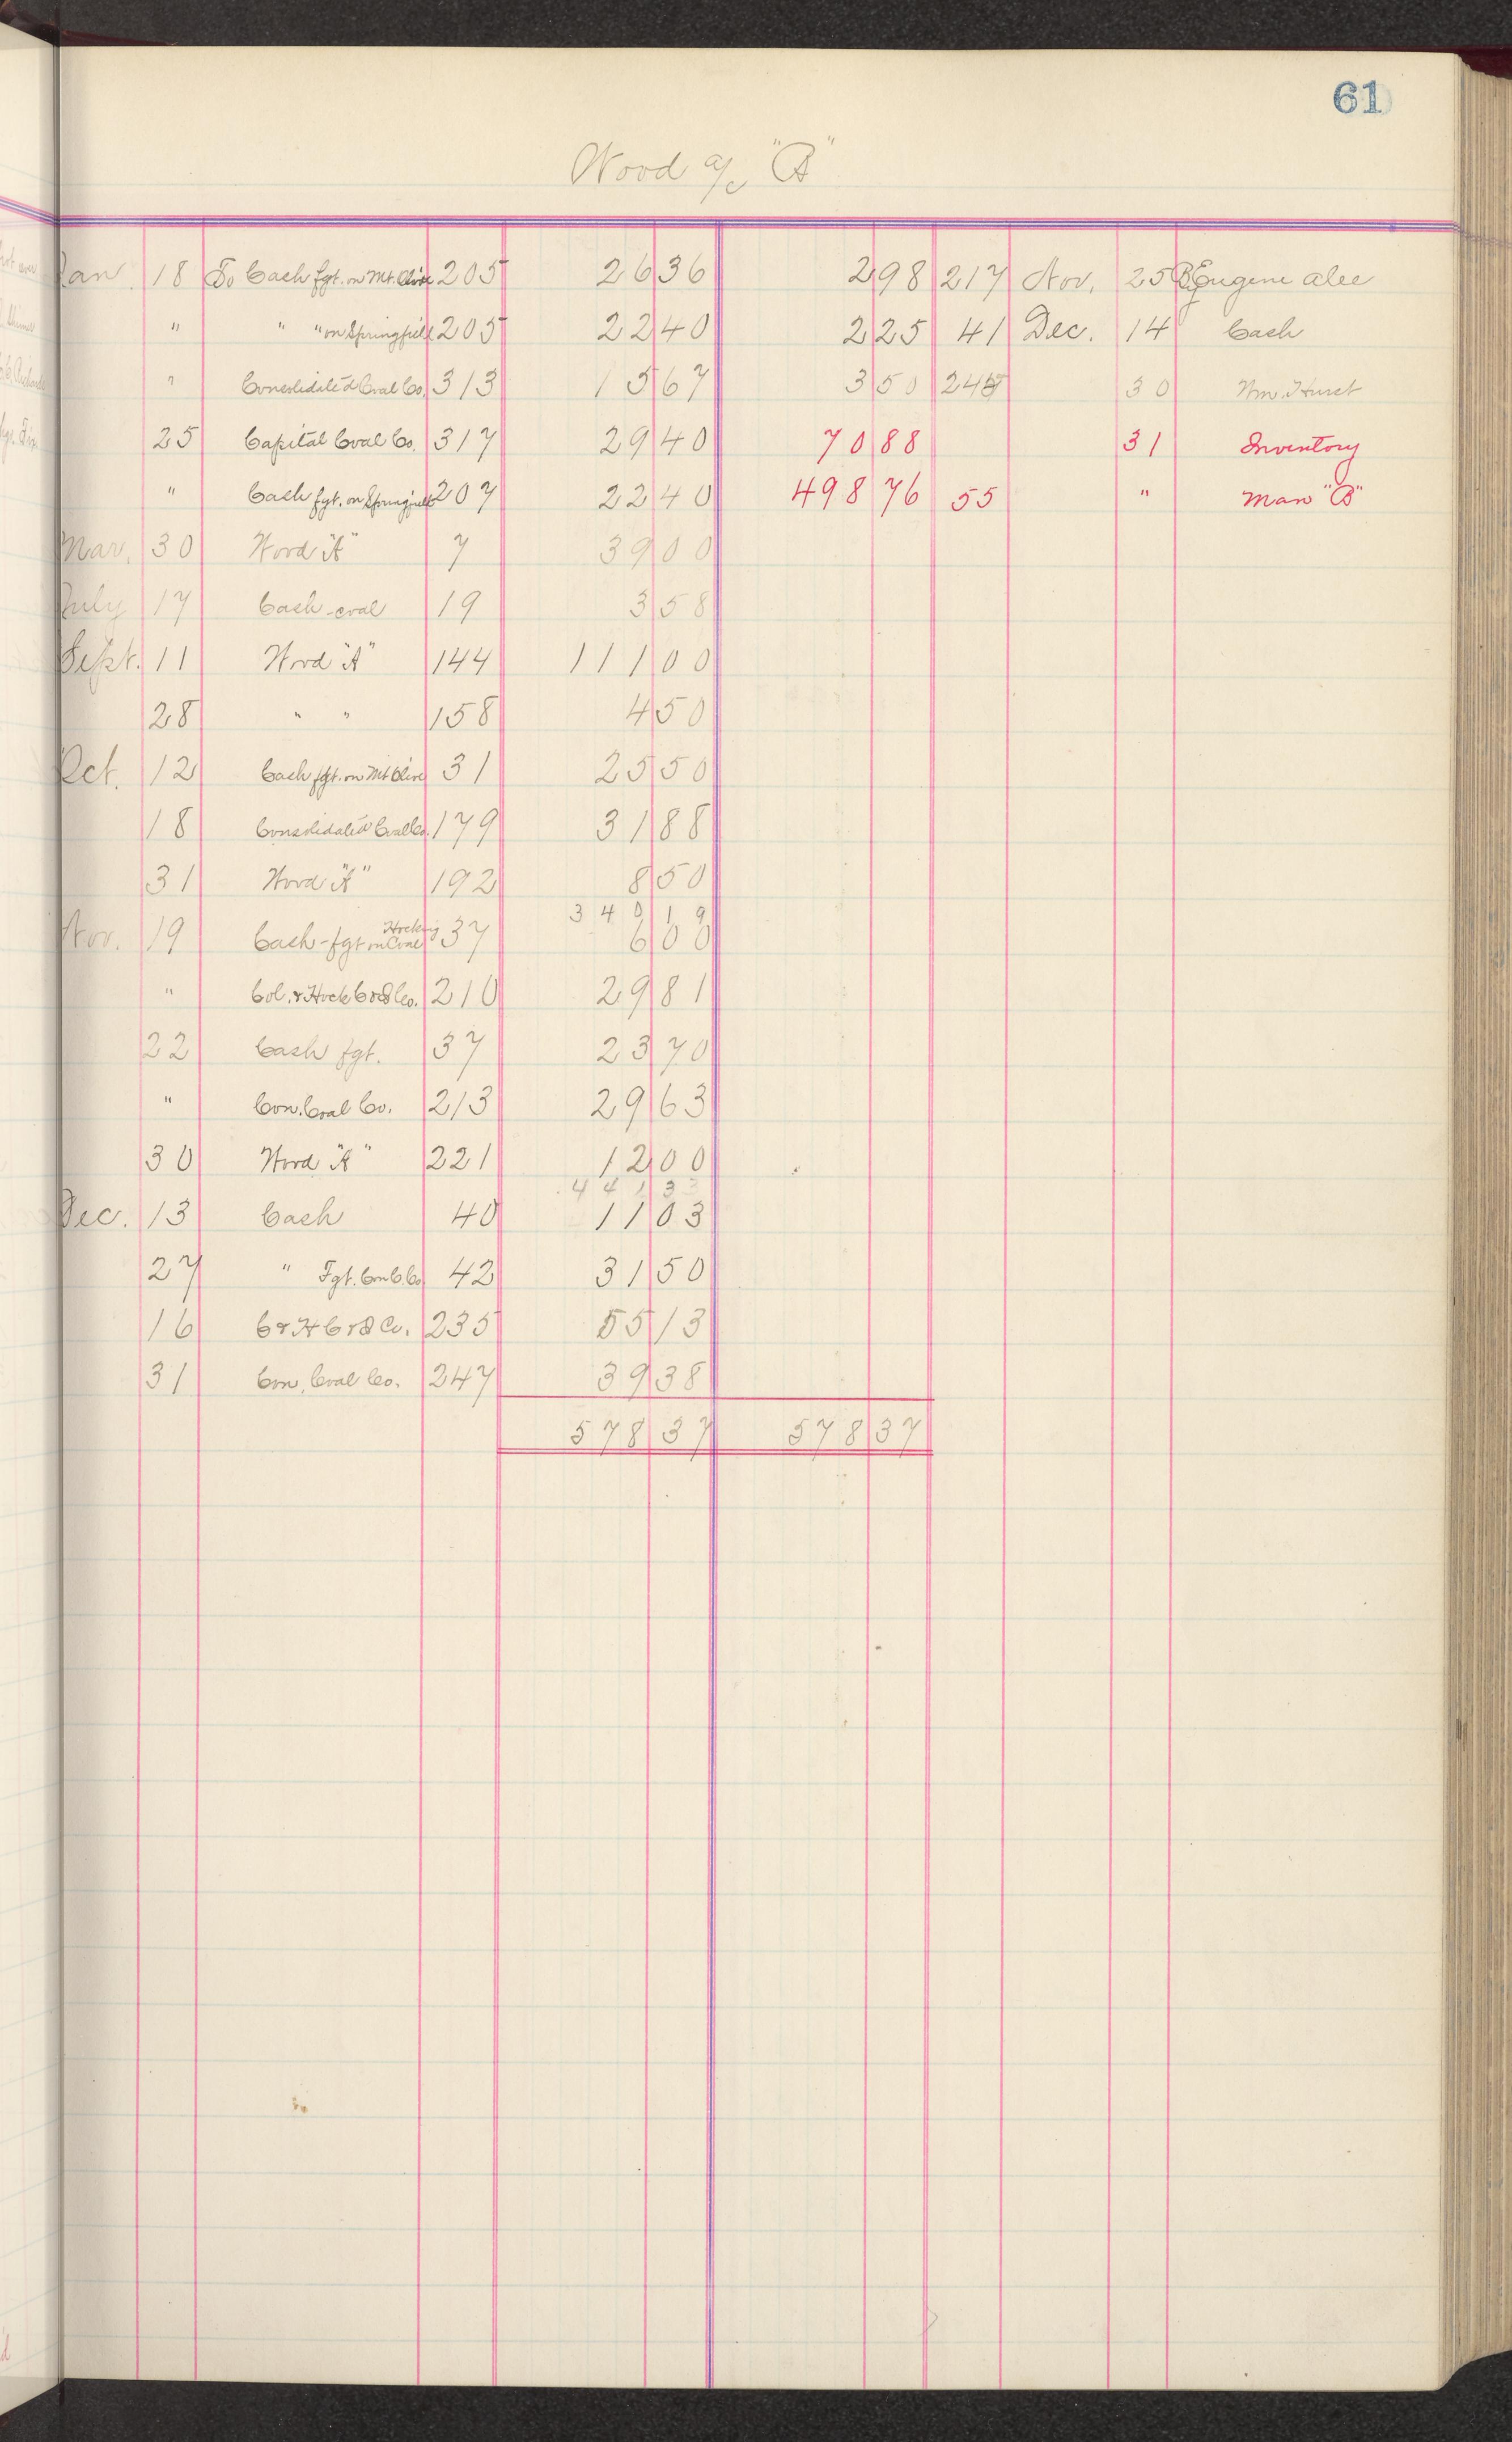 61
Wood a/c "B"
Jan. 18 To Cash fgt. on Mt. Olive 205 26 36 2 98 217 Nov. 25 By Eugene Alee
" " " on Springfield 205 22 40 2 25 41 Dec. 14 Cash
" Consolidated Coal Co. 313 15 67 3 50 245 30 Wm. Hurst
25 Capital Coal Co. 317 29 40 70 88 31 Inventory
" Cash fgt. on Springfield 207 22 40 498 76 55 " Man "B"
Mar. 30 Wood "A" 7 39 00
July 17 Cash - coal 19 3 58
Sept. 11 Wood "A" 144 111 00
28 " " 158 4 50
Oct. 12 Cash fgt. on Mt Olive 31 25 50
18 Consolidated Coal Co. 179 31 88
31 Wood "A" 192 8 50
340 19
Nov. 19 Cash - fgt on Hocking Coal 37 6 00
" Col. & Hock C & I Co. 210 29 81
22 Cash fgt. 37 23 70
" Con. Coal Co. 213 29 63
30 Wood "A" 221 12 00
441 33
Dec. 13 Cash 40 11 03
27 " Fgt. Con C. Co 42 31 50
16 C & H C & I Co. 235 55 13
31 Con. Coal Co. 247 39 38
578 37 578 37